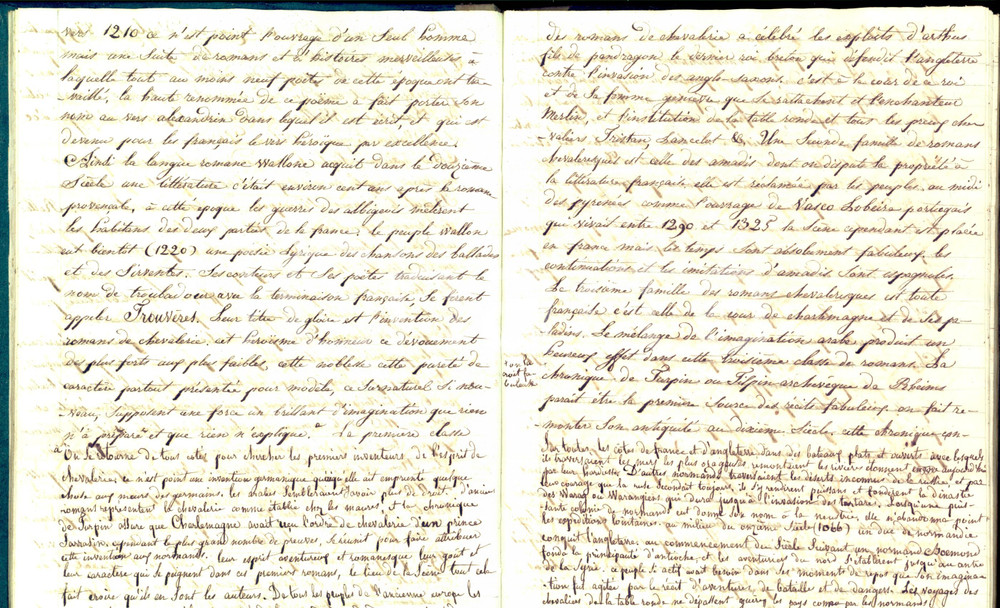 vers 1210 ce n'est point l'ouvrage d'un seul homme
mais une Suite de romans et d'histoires merveilleuses, à
laquelle tout au moins neuf poëtes de cette époque ont tra-
vaillé, la haute renommée de ce poëme a fait porter son
nom au vers alexandrin dans lequel il est écrit, et qui est
devenu pour les français le vers héroïque par excellence.
Ainsi la langue romane wallone acquit dans le douzième
Siècle une littérature c'était environ cent ans après la romane
provençale, à cette époque les guerres des albigeois mêlèrent
les habitans des deux parties de la france: le peuple wallon
eut bientôt (1220) une poësie lyrique des chansons des ballades
et des Sirventes. Ses conteurs et Ses poëtes traduisant le
nom de troubadour avec la terminaison française, Se firent
appeler Trouvères. Leur titre de gloire est l'invention des
romans de chevalerie, cet héroïsme d'honneur ce dévouement
des plus forts aux plus faibles, cette noblesse cette pureté de
caractère partout présentée pour modèle, ce Surnaturel Si nou-
veau, Supposent une force un brillant d'imagination que rien
n'a préparé et que rien n'explique. La première classe
On se tourne de tous cotés pour chercher les premiers inventeurs de l'esprit de
chevalerie; ce n'est point une invention germanique quoiqu'elle ait emprunté quelque
chose aux mœurs des germains. les arabes Sembleraient avoir plus de droit. D'anciens
romans représentent la chevalerie comme établie chez les maures, et la chronique
de Turpin assure que Charlemagne avait reçu l'ordre de chevalerie d'un prince
Sarrasin. cependant le plus grand nombre de preuves, Se réunit pour faire attribuer
cette invention aux normands. leur esprit aventureux et romanesque leur goût et
leur caractère qui Se peignent dans ces premiers romans, le lieu de la Scène, tout cela
fait croire qu'ils en Sont les auteurs. De tous les peuples de l'ancienne europe les
des romans de chevalerie a célébré les exploits d'arthus
fils de pandragon le dernier roi breton qui défendit l'angleterre
contre l'invasion des anglo-saxons. c'est à la cour de ce roi
et de Sa femme genièvre que Se rattachent et l'enchanteur
Merlin, et l'institution de la table ronde et tous les preux che-
valiers Tristan, Lancelot &. Une Seconde famille de romans
chevaleresques est celle des amadis dont on dispute la propriété à
la littérature française, elle est réclamée par les peuples au midi
des pyrénées comme l'ouvrage de Vasco Lobeira portugais
qui vivait entre 1290 et 1325 la Scène cependant est placée
en france mais les temps Sont absolument fabuleux. les
continuations et les imitations d'amadis Sont espagnoles.
La troisième famille des romans chevaleresques est toute
française c'est celle de la cour de charlemagne et de Ses pa-
ladins. Le mélange de l'imagination arabe produit un
heureux effet dans cette troisième classe de romans. La
chronique de Turpin ou Tilpin archevêque de Rheims
parait être la première Source des récits fabuleux on fait re-
monter Son antiquité au dixième Siècle, cette chronique con-
Sur toutes les côtes de france et d'angleterre dans des bateaux plats, et ouverts avec lesquels
ils traversaient les mers les plus orageuses remontaient les rivières étonnent encore aujourd'hui
par leur hardiesse. D'autres normands traversaient les déserts inconnus de la russie, et par
leur courage que la ruse secondait toujours, ils s'y rendirent puissans et fondèrent la dynastie
des Waregs ou Warangiens qui dura jusqu'à l'invasion des tartares. Lorsqu'une puis-
sante colonie de normands eut donné Son nom à la neustrie, elle n'abandonna point
les expéditions lointaines. au milieu du onzième Siècle (1066) un duc de normandie
conquit l'angleterre. au commencement du Siècle Suivant un normand Boemond
fonda la principauté d'antioche, et les aventuriers du nord S'établirent jusqu'au centre
de la Syrie. ce peuple Si actif avait besoin dans Ses moment de repos que Son imagina-
tion fut agitée par le récit d'aventures, de batailles et de dangers. Les voyages des
chevaliers de la table ronde ne dépassent guères les pays connus par les normands.